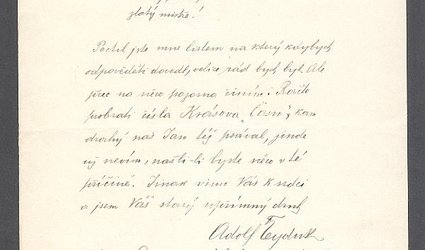 zlatý mistře!
Poctil jste mne listem na který kdybych
odpověděti dovedl, velice rád bych byl. Ale
přec na něco pojena činím: Račte
probrati čísla Krásova "Času", kam
drahý náš Jan též psával, jinde
už nevím, našli-li byste něco v té
příčině. Jinak vinu Vás k srdci
a jsem Váš starý upřímný druh
Adolf Heyduk